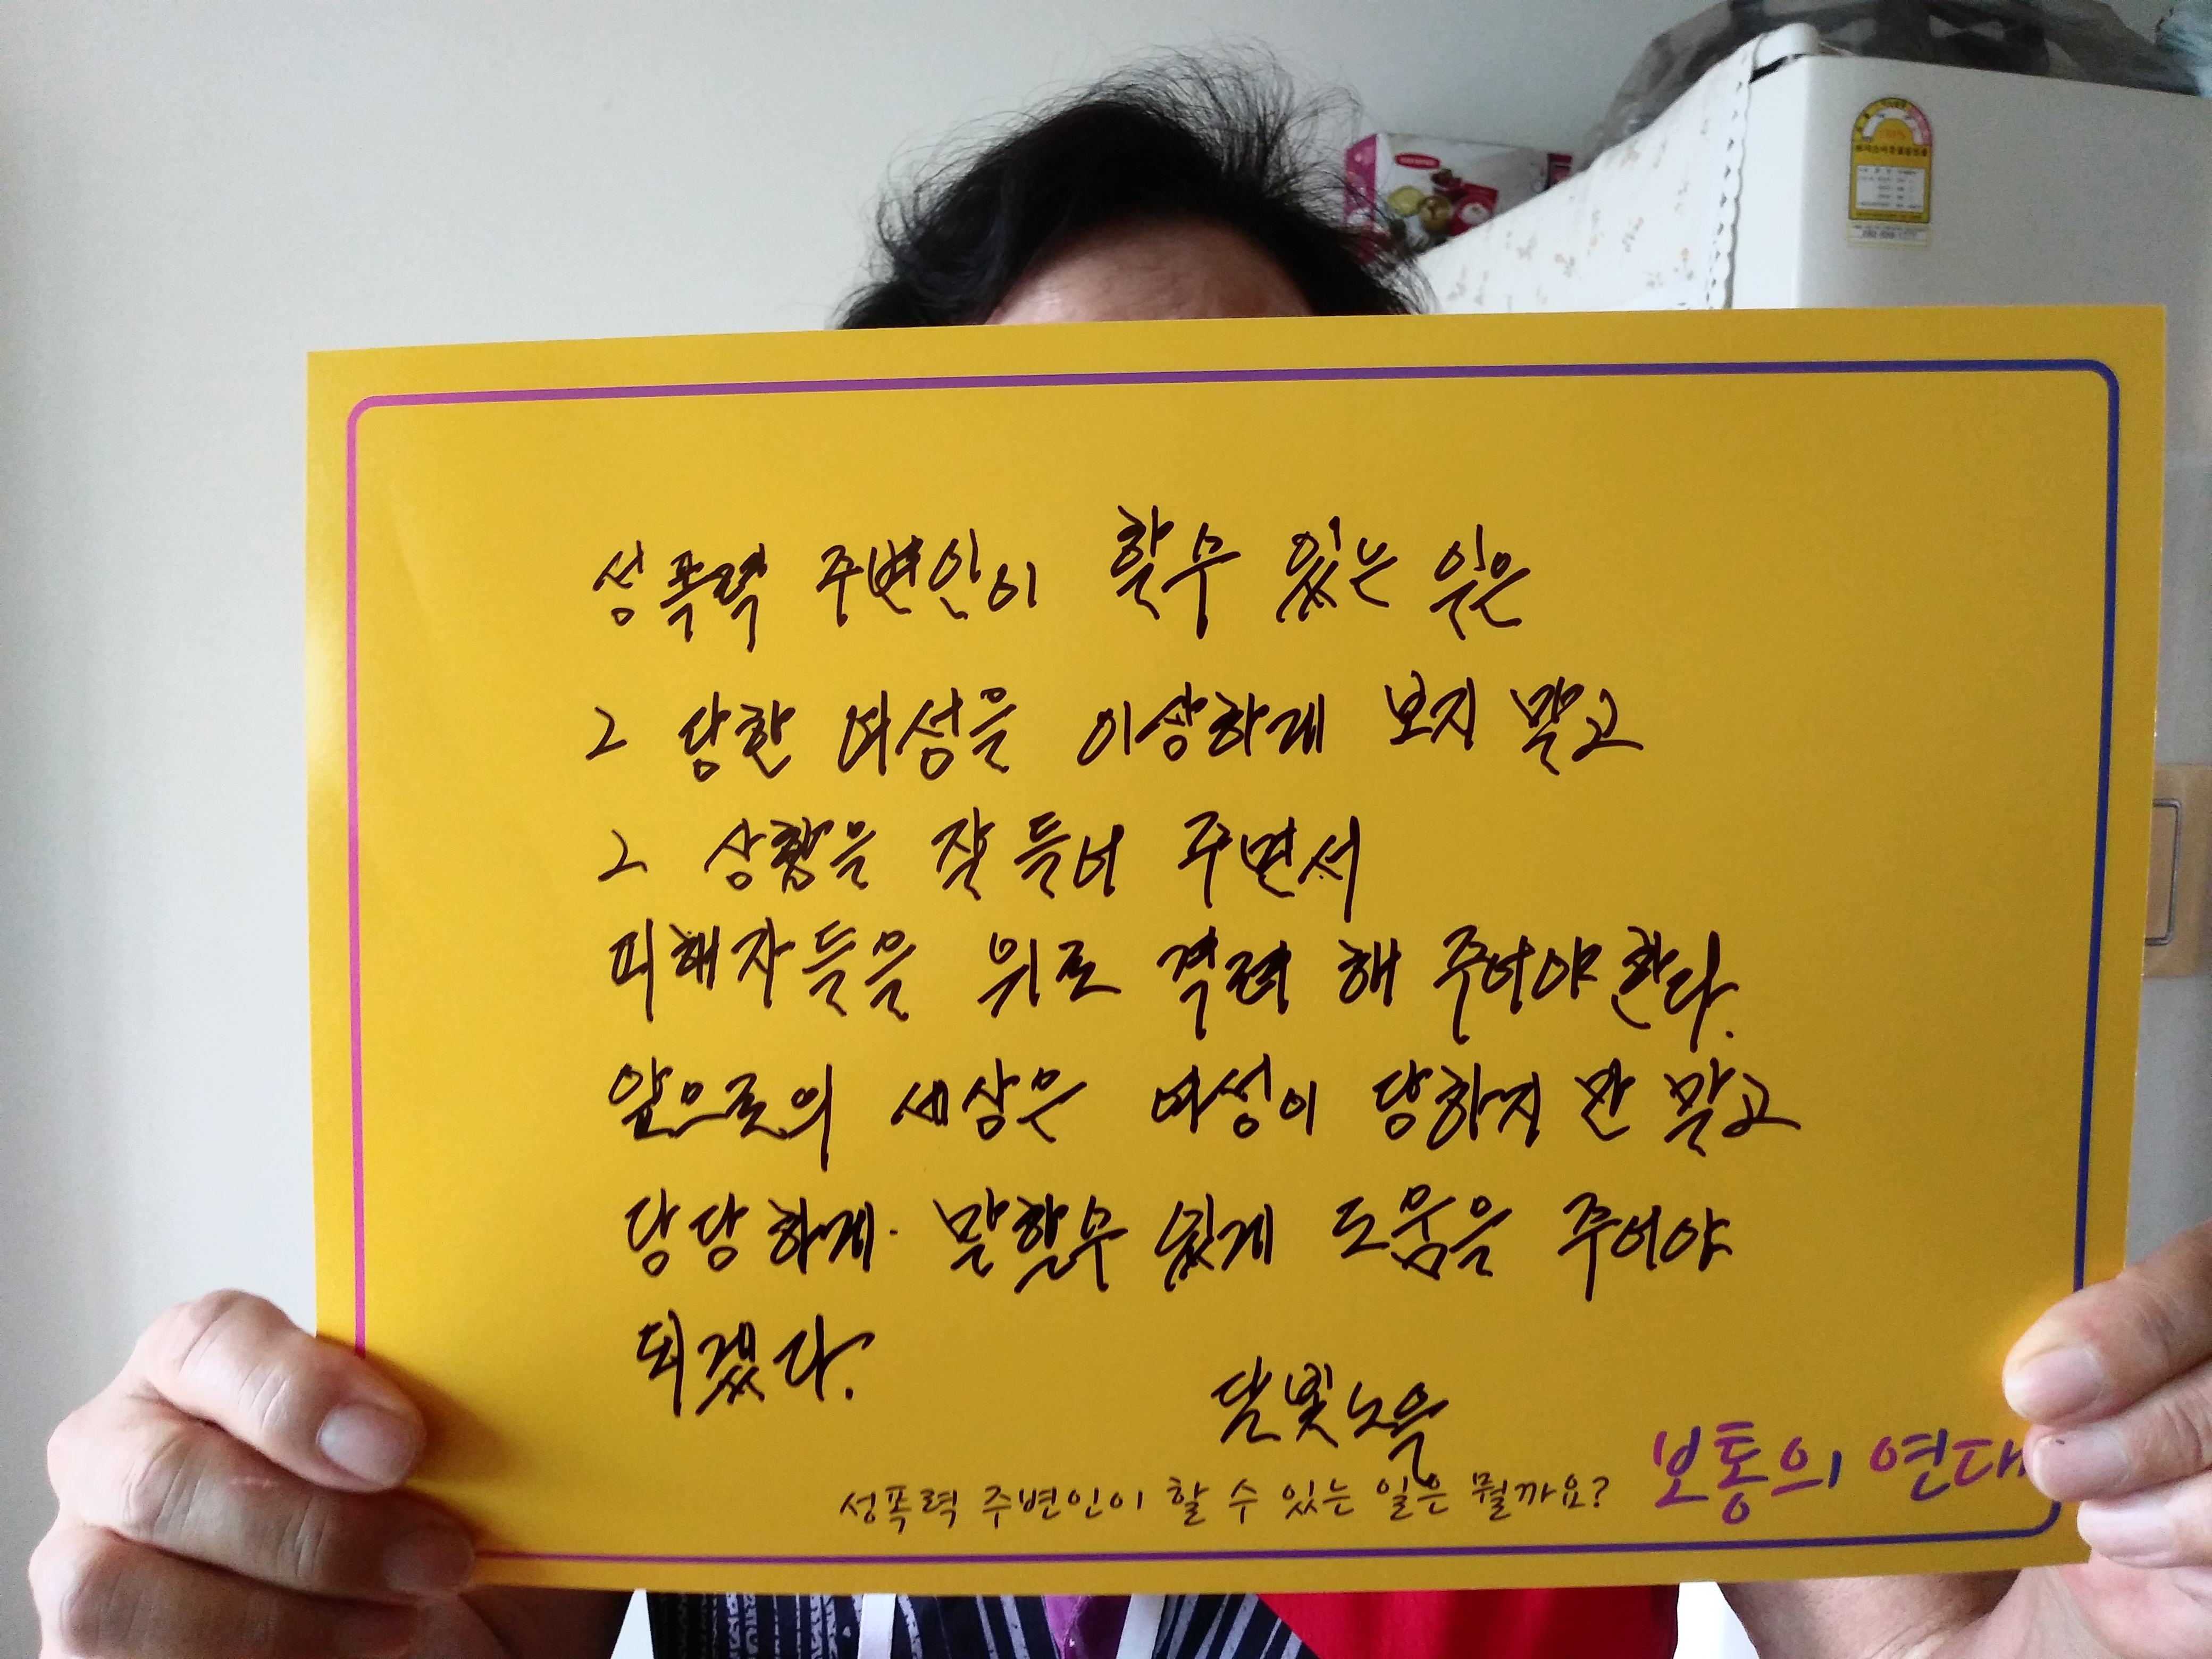 성폭력 주변인이 할수 있는 일은
그 당한 여성을 이상하게 보지 말고
그 상황을 잘 들어 주면서
피해자들을 위로 격려 해 주어야 한다.
앞으로의 세상은 여성이 당하지만 말고
당당하게. 말할수 있게 도움을 주어야
되겠다.
달빛노을
성폭력 주변인이 할 수 있는 일은 뭘까요?
보통의 연대